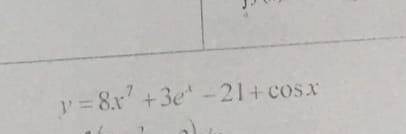 y = 8x⁷ + 3eˣ − 21 + cos x